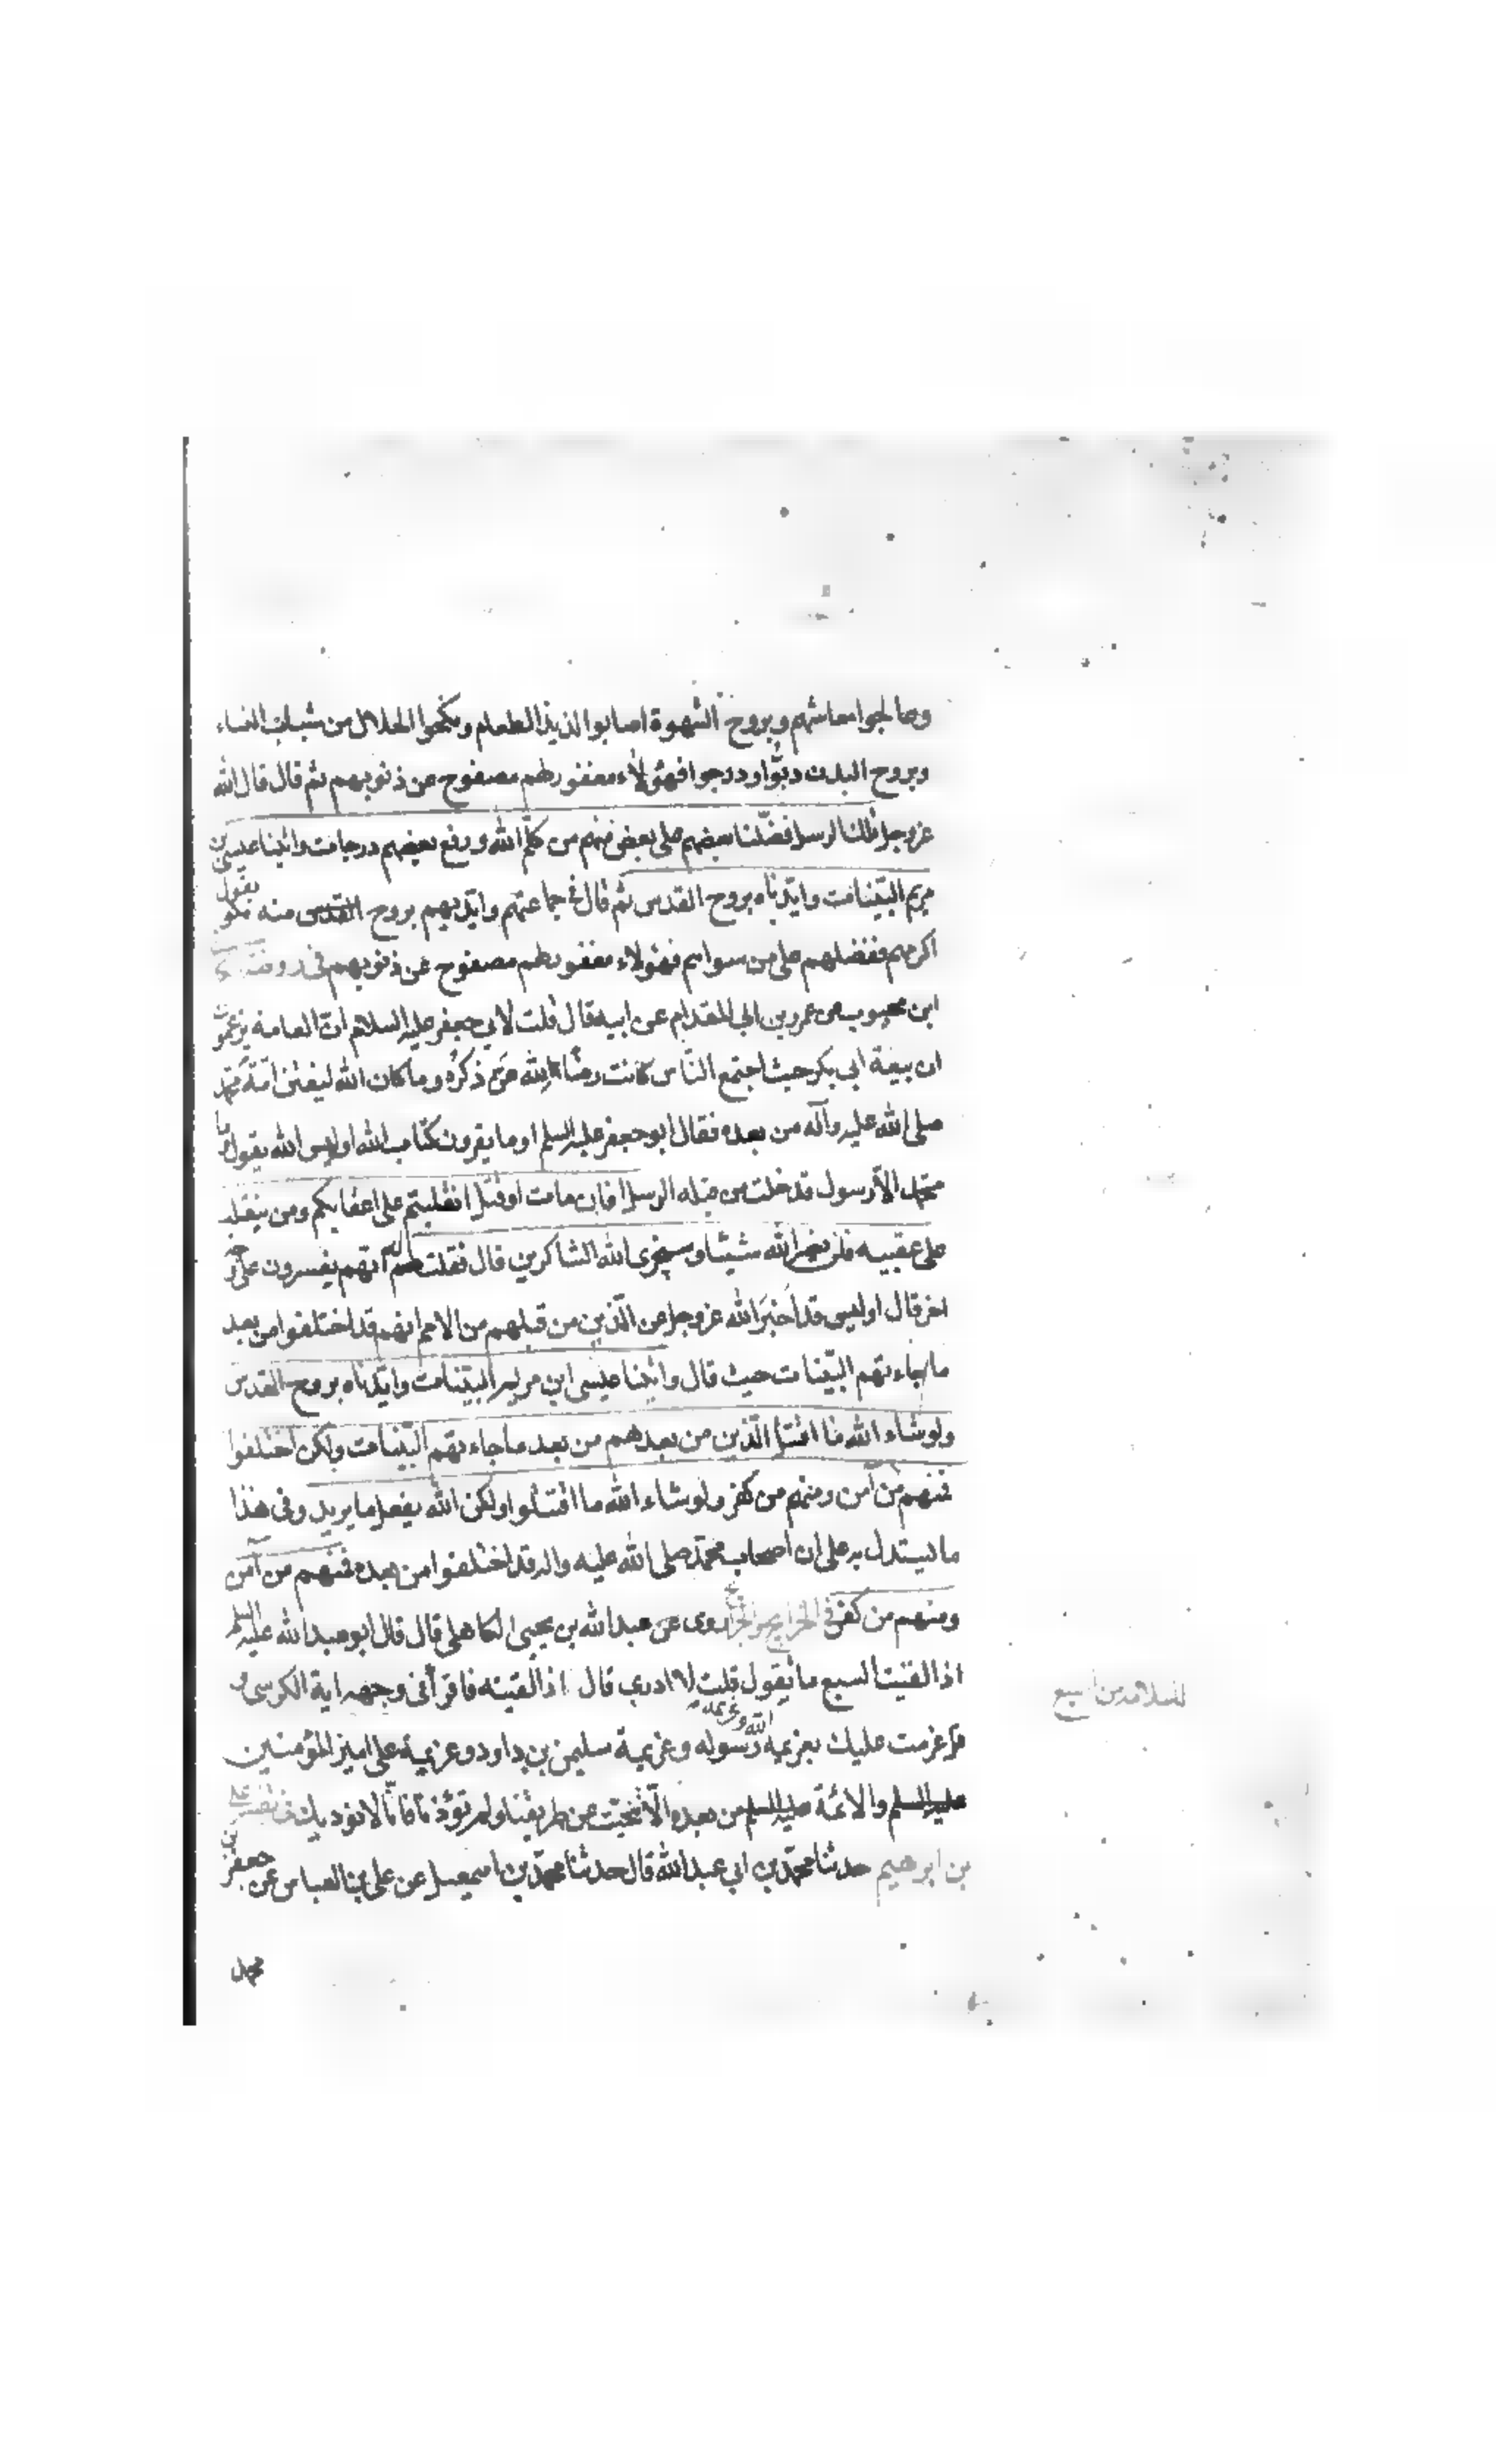 وعالجوا معاشهم وبروح الشهوة اصابوا لذيذ الطعام ونكحوا الحلال من شباب النساء
وبروح البدن دبّوا ودرجوا فهؤلاء مغفور لهم مصفوح عن ذنوبهم ثم قال قال الله
عزوجل تلك الرسل فضّلنا بعضهم على بعض منهم من كلّم الله ورفع بعضهم درجات واتينا عيسى بن
مريم البيّنات وايّدناه بروح القدس ثم قال فى جماعتهم وايّدهم بروح منه يقول
اكرمهم ففضلهم على من سواهم فهؤلاء مغفور لهم مصفوح عن ذنوبهم فى روضة
ابن محبوب عن عمرو بن ابى المقدام عن ابيه قال قلت لابي جعفر عليه السلام انّ العامة يزعمون
ان بيعة ابى بكر حيث اجتمع النّاس كانت رضًا لله عزّ ذكره وما كان الله ليفتن امّة محمّد
صلى الله عليه وآله من بعده فقال ابو جعفر عليه السلم اوما يقرون كتاب الله اوليس الله يقول وما
محمّد الّا رسول قد خلت من قبله الرسل افان مات او قتل انقلبتم على اعقابكم ومن ينقلب
على عقبيه فلن يضرّ الله شيئا وسيجزى الله الشاكرين قال فقلت له انهم يفسرون على وجه
اخر قال اوليس قد اَخبَرَ الله عزوجل عن الّذين من قبلهم من الامم انهم قد اختلفوا من بعد
ما جاءتهم البيّنات حيث قال واتينا عيسى ابن مريم البيّنات وايّدناه بروح القدس
ولو شاء الله ما اقتتل الّذين من بعدهم من بعد ما جاءتهم البيّنات ولكن اختلفوا
فمنهم من آمن ومنهم من كفر ولو شاء الله ما اقتتلوا ولكن الله يفعل ما يريد وفى هذا
ما يستدل به على ان اصحاب محمّد صلى الله عليه واله قد اختلفوا من بعده فمنهم من آمن
ومنهم من كفر فى الخرايج والجرايح روى عن عبدالله بن يحيى الكاهلى قال قال ابو عبدالله عليه السلم
اذا لقيت السبع ما تقول قلت لا ادرى قال اذا لقيته فاقرأ فى وجهه اية الكرسى و
للسلامة من السبع
قل عزمت عليك بعزيمة الله وعزيمة رسوله وعزيمة سليمن بن داود وعزيمة على امير المؤمنين
والائمة من بعده الّا تنحّيت عن طريقنا ولم تؤذنا فانّا لا نؤذيك فى تفسير على
بن ابرهيم حدثنا محمّد بن ابى عبدالله قال حدثنا محمّد بن اسمعيل عن على بن العباس عن جعفر بن
محمّد